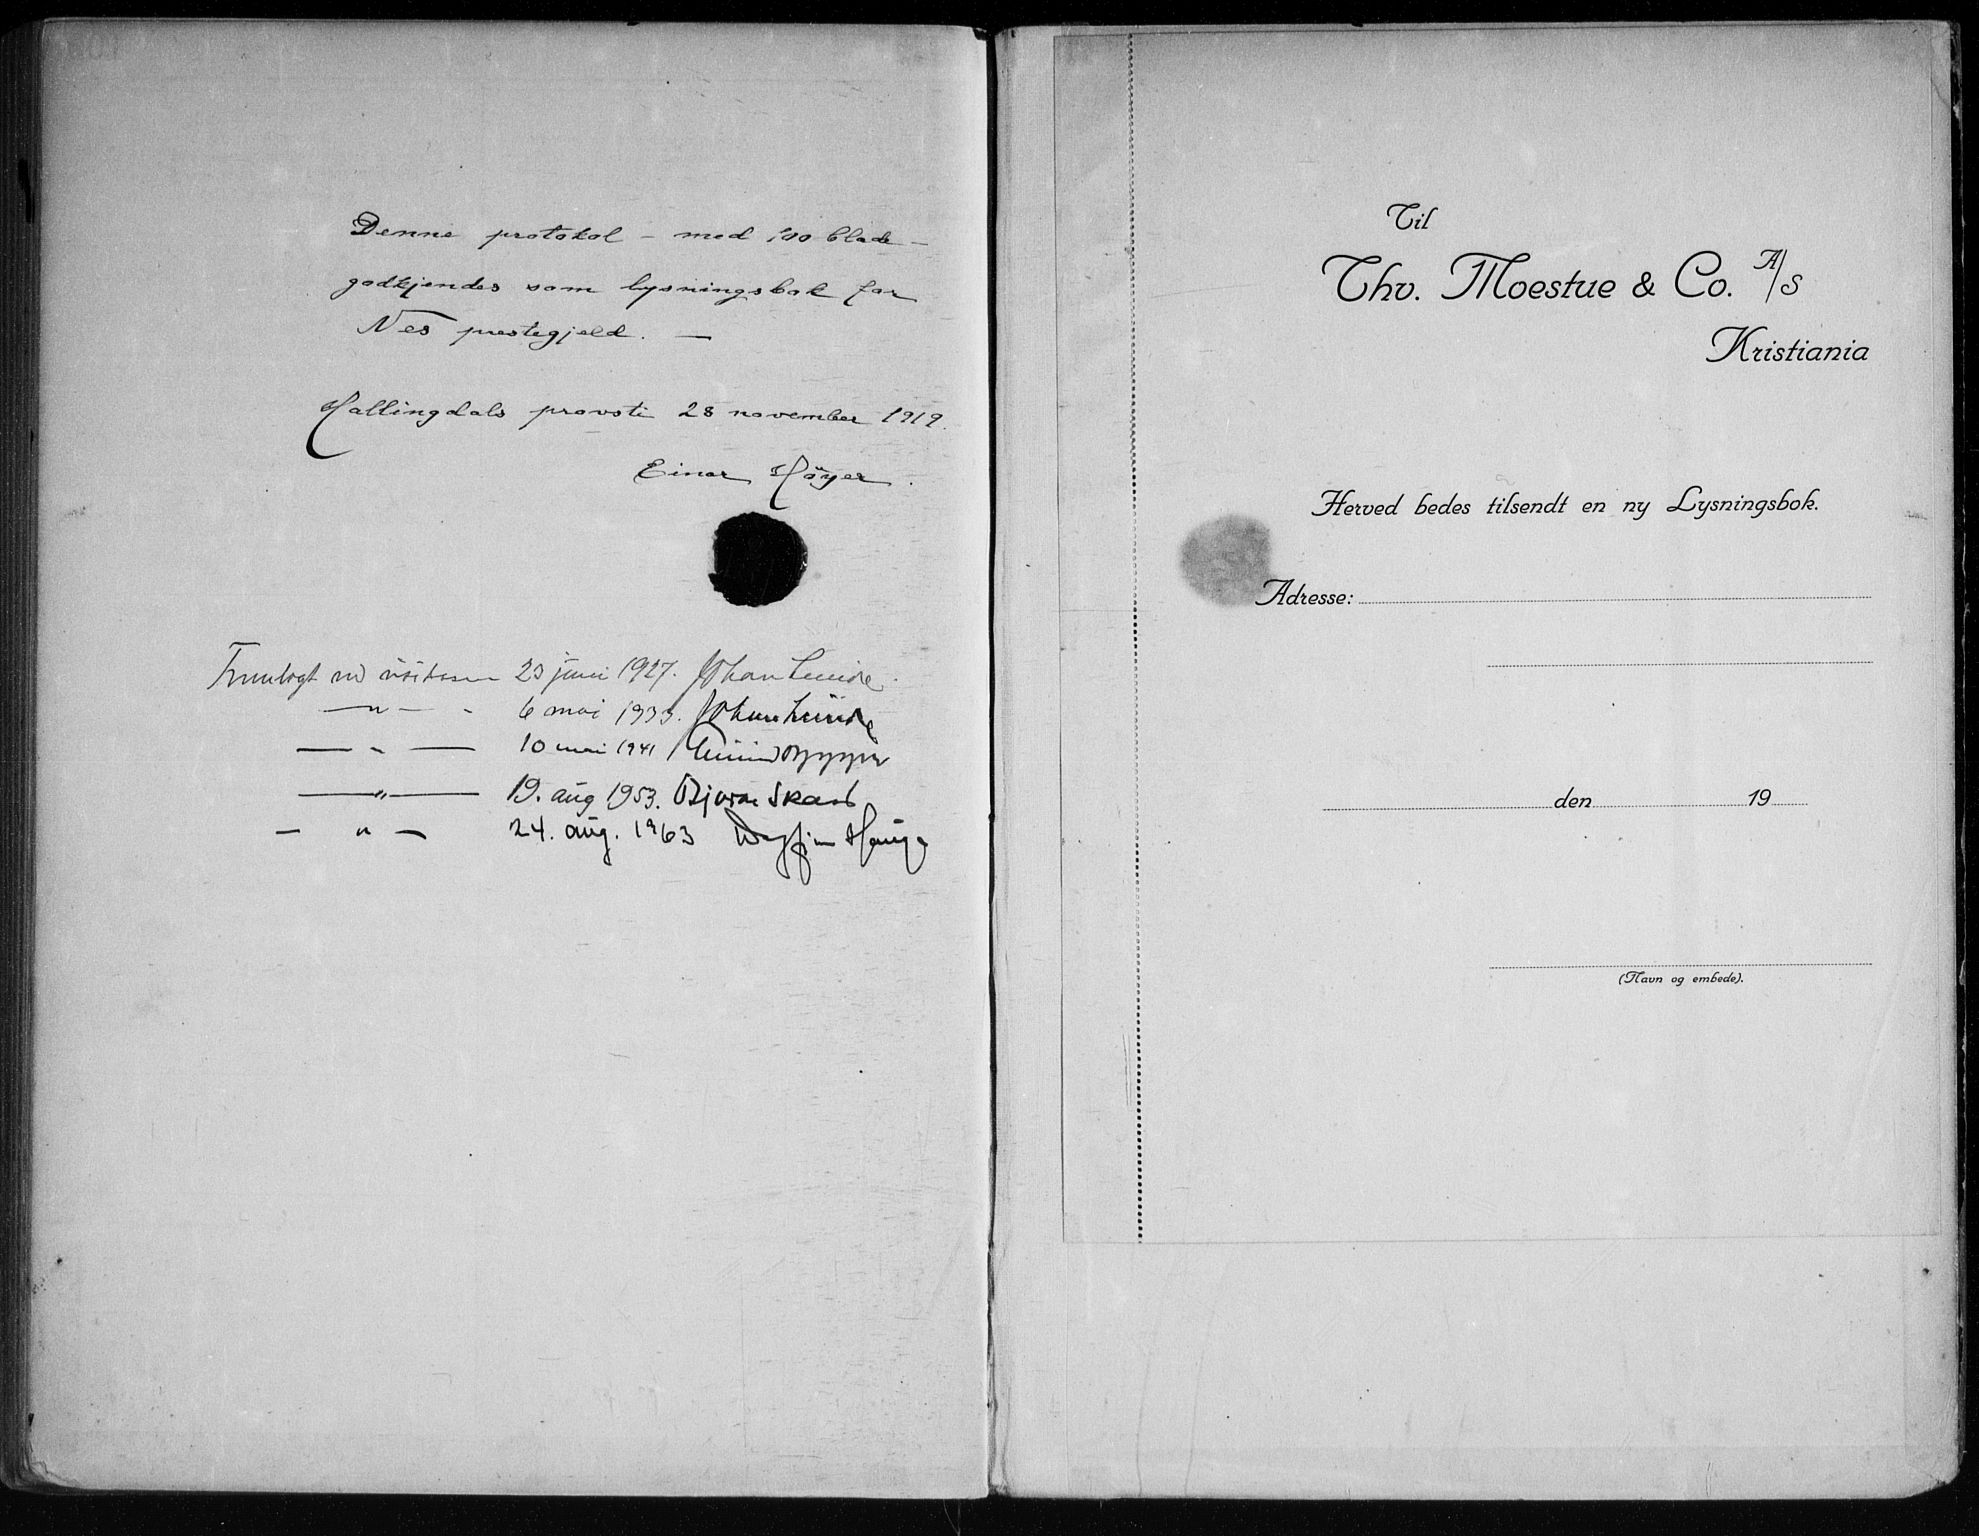 Denne protokol – med 100 blade –
godkjendes som lysningsbok for
Nes prestegjeld. —
Hallingdals provsti 28 november 1919.
Einar Höyer.
Fremlagt ved visitasen 23 juni 1927. Johan Lunde.
— " — - 6 mai 1933. Johan Lunde
— " — 10 mai 1941
— " — 19. aug 1953. Bjarne Skard
— " — 24. aug. 1963 Dagfinn Hauge
Til
Thv. Moestue & Co. A/S
Kristiania
Herved bedes tilsendt en ny Lysningsbok.
Adresse:
den 19
(Navn og embede).